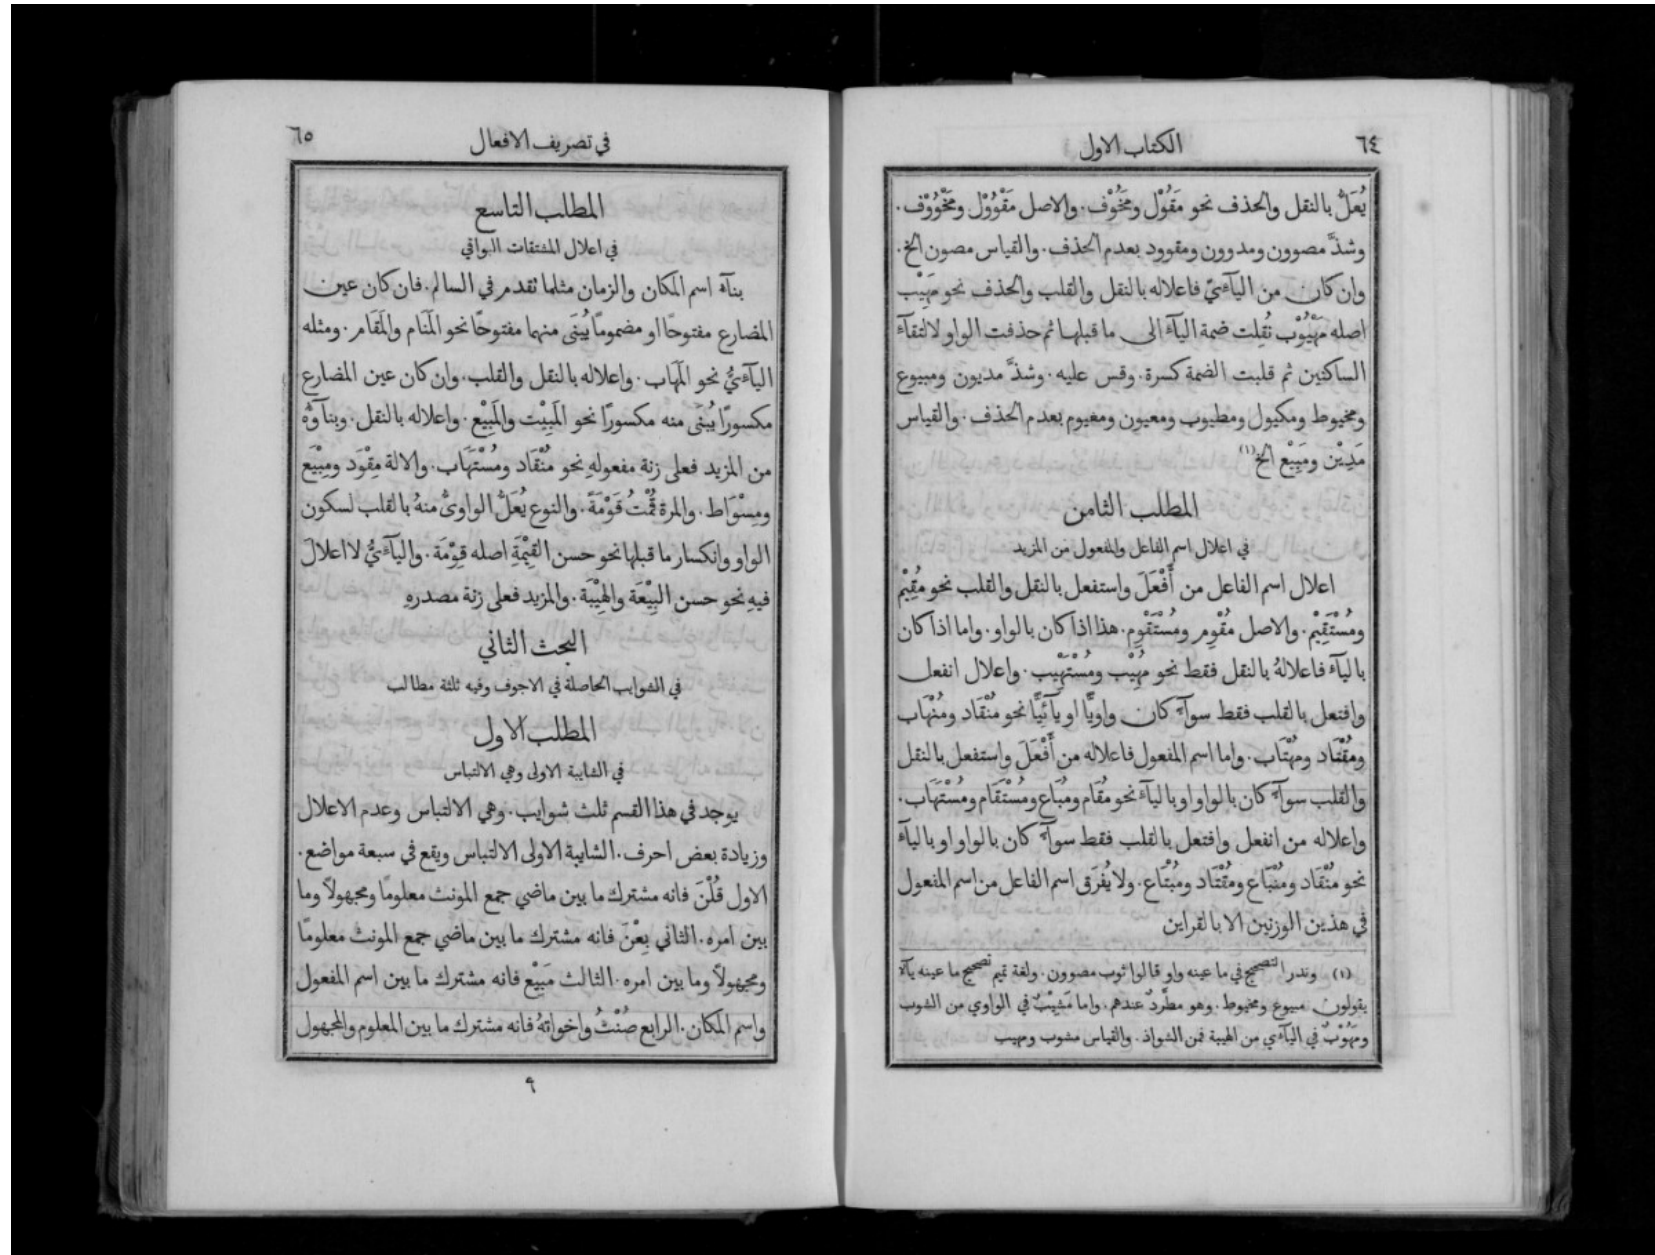 ٦٤
الكتاب الاول
يُعَلُّ بالنقل والحذف نحو مَقُوْل ومَخُوْف. والاصل مَقْوُوْل ومَخْوُوْف.
وشذَّ مصوون ومدوون ومقوود بعدم الحذف. والقياس مصون الخ.
وان كان من اليآءيّ فاعلاله بالنقل والقلب والحذف نحو مَهِيْب
اصله مَهْيُوْب نُقِلت ضمة اليآء الى ما قبلها ثم حذفت الواو لالتقآء
الساكنين ثم قلبت الضمة كسرة. وقس عليه. وشذَّ مديون ومبيوع
ومخيوط ومكيول ومطيوب ومعيون ومغيوم بعدم الحذف. والقياس
مَدِيْن ومَبِيْع الخ (١)
المطلب الثامن
في اعلال اسم الفاعل والمفعول من المزيد
اعلال اسم الفاعل من أَفْعَلَ واستفعل بالنقل والقلب نحو مُقِيْم
ومُسْتَقِيْم. والاصل مُقْوِم ومُسْتَقْوِم. هذا اذا كان بالواو. واما اذا كان
باليآء فاعلالهُ بالنقل فقط نحو مُهِيْب ومُسْتَهِيْب. واعلال انفعل
وافتعل بالقلب فقط سوآء كان واويًّا او يآئيًّا نحو مُنْقَاد ومُنْهَاب
ومُقْتَاد ومُهْتَاب. واما اسم المفعول فاعلاله من أَفْعَلَ واستفعل بالنقل
والقلب سوآء كان بالواو او باليآء نحو مُقَام ومُبَاع ومُسْتَقَام ومُسْتَهَاب.
واعلاله من انفعل وافتعل بالقلب فقط سوآء كان بالواو او باليآء
نحو مُنْقَاد ومُنْبَاع ومُقْتَاد ومُبْتَاع. ولا يُفرَق اسم الفاعل من اسم المفعول
في هذين الوزنين الا بالقراين
(١) وندر التصحيح في ما عينه واو قالوا ثوب مصوون. ولغة تميم تصحيح ما عينه يآء
يقولون مبيوع ومخيوط. وهو مطَّردٌ عندهم. واما مَشِيْبٌ في الواوي من الشوب
ومَهُوْبٌ في اليآءي من الهيبة فمن الشواذ. والقياس مشوب ومهيب
في تصريف الافعال
٦٥
المطلب التاسع
في اعلال المشتقات البواقي
بنآء اسم المكان والزمان مثلما تقدم في السالم. فان كان عين
المضارع مفتوحًا او مضمومًا يُبنَى منهما مفتوحًا نحو المَنَام والمَقَام. ومثله
اليآءيُّ نحو المَهَاب. واعلاله بالنقل والقلب. وان كان عين المضارع
مكسورًا يُبنَى منه مكسورًا نحو المَبِيْت والمَبِيْع. واعلاله بالنقل. وبنآؤهُ
من المزيد فعلى زنة مفعولهِ نحو مُنْقَاد ومُسْتَهَاب. والالة مِقْوَد ومِبْيَع
ومِسْوَاط. والمرة قُمْتُ قَوْمَةً. والنوع يُعَلُّ الواويُّ منهُ بالقلب لسكون
الواو وانكسار ما قبلها نحو حسن القِيْمَةِ اصله قِوْمَة. واليآءيُّ لا اعلالَ
فيهِ نحو حسن البِيْعَة والهِيْبَة. والمزيد فعلى زنة مصدرهِ
البحث الثاني
في الشوايب الحاصلة في الاجوف وفيه ثلثة مطالب
المطلب الاول
في الشايبة الاولى وهي الالتباس
يوجد في هذا القسم ثلث شوايب. وهي الالتباس وعدم الاعلال
وزيادة بعض احرف. الشايبة الاولى الالتباس ويقع في سبعة مواضع.
الاول قُلْنَ فانه مشترك ما بين ماضي جمع المونث معلومًا ومجهولًا وما
بين امره. الثاني بِعْنَ فانه مشترك ما بين ماضي جمع المونث معلومًا
ومجهولًا وما بين امره. الثالث مَبِيْع فانه مشترك ما بين اسم المفعول
واسم المكان. الرابع صُنْتُ واخواتهُ فانه مشترك ما بين المعلوم والمجهول
٩